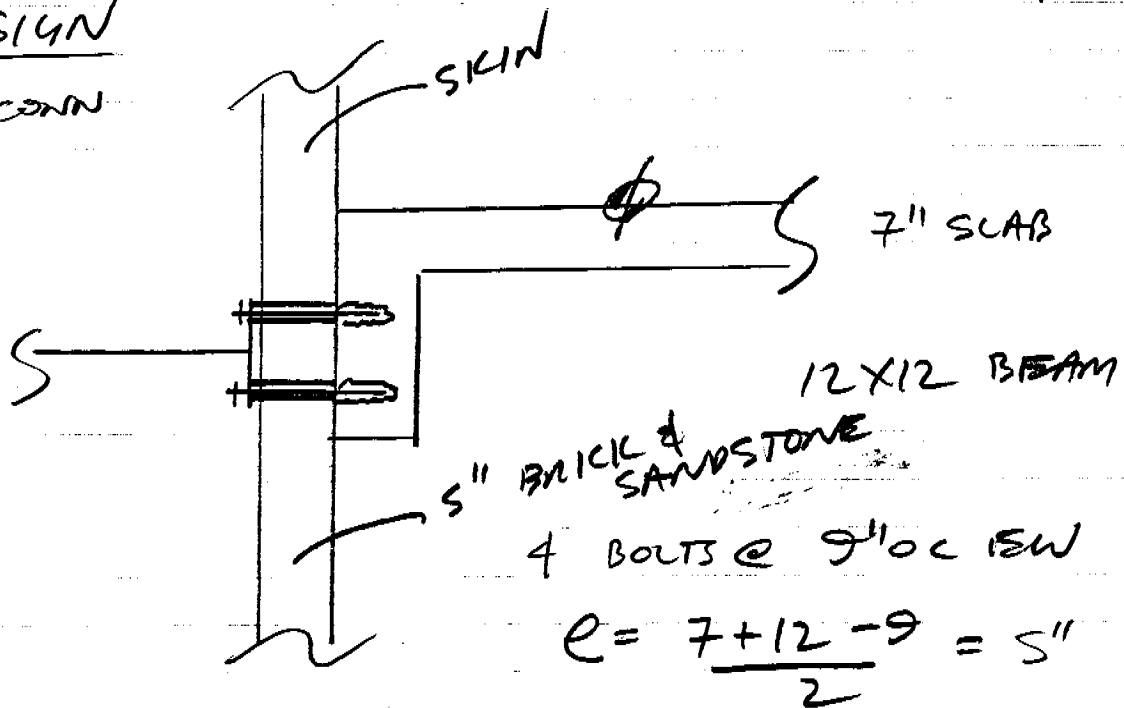 SIGN
CONN
SKIN
7" SLAB
12X12 BEAM
5" BRICK &
SANDSTONE
4 BOLTS @ 9" OC EW
e = 7+12-9 = 5"
2